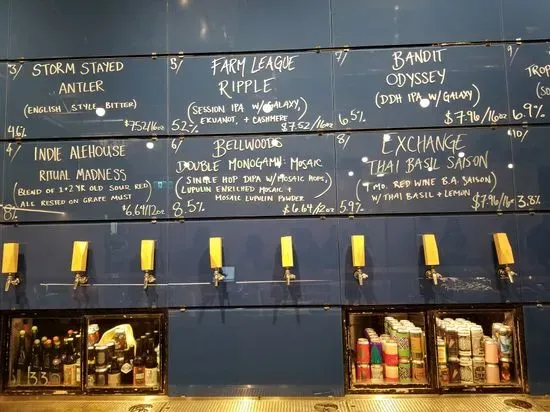 3/ STORM STAYED
ANTLER
(ENGLISH STYLE BITTER)
4.6% $7.52/16oz
5/ FARM LEAGUE
RIPPLE
(SESSION IPA W/ GALAXY,
EKUANOT, + CASHMERE
5.2% $7.52/16oz
7/ BANDIT
ODYSSEY
(DDH IPA W/ GALAXY)
6.5% $7.96/16oz
9/
TROP
(SO
6.9%
4/ INDIE ALEHOUSE
RITUAL MADNESS
(BLEND OF 1+2 YR OLD SOUR RED
ALL RESTED ON GRAPE MUST)
8% $6.64/12oz
6/ BELLWOODS
DOUBLE MONOGAMY: MOSAIC
(SINGLE HOP DIPA W/ MOSAIC HOPS,
LUPULIN ENRICHED MOSAIC +
MOSAIC LUPULIN POWDER
8.5% $6.64/12oz
8/ EXCHANGE
THAI BASIL SAISON
(7 MO. RED WINE B.A. SAISON
W/ THAI BASIL + LEMON
5.9% $7.96/16oz
10/
3.8%
33